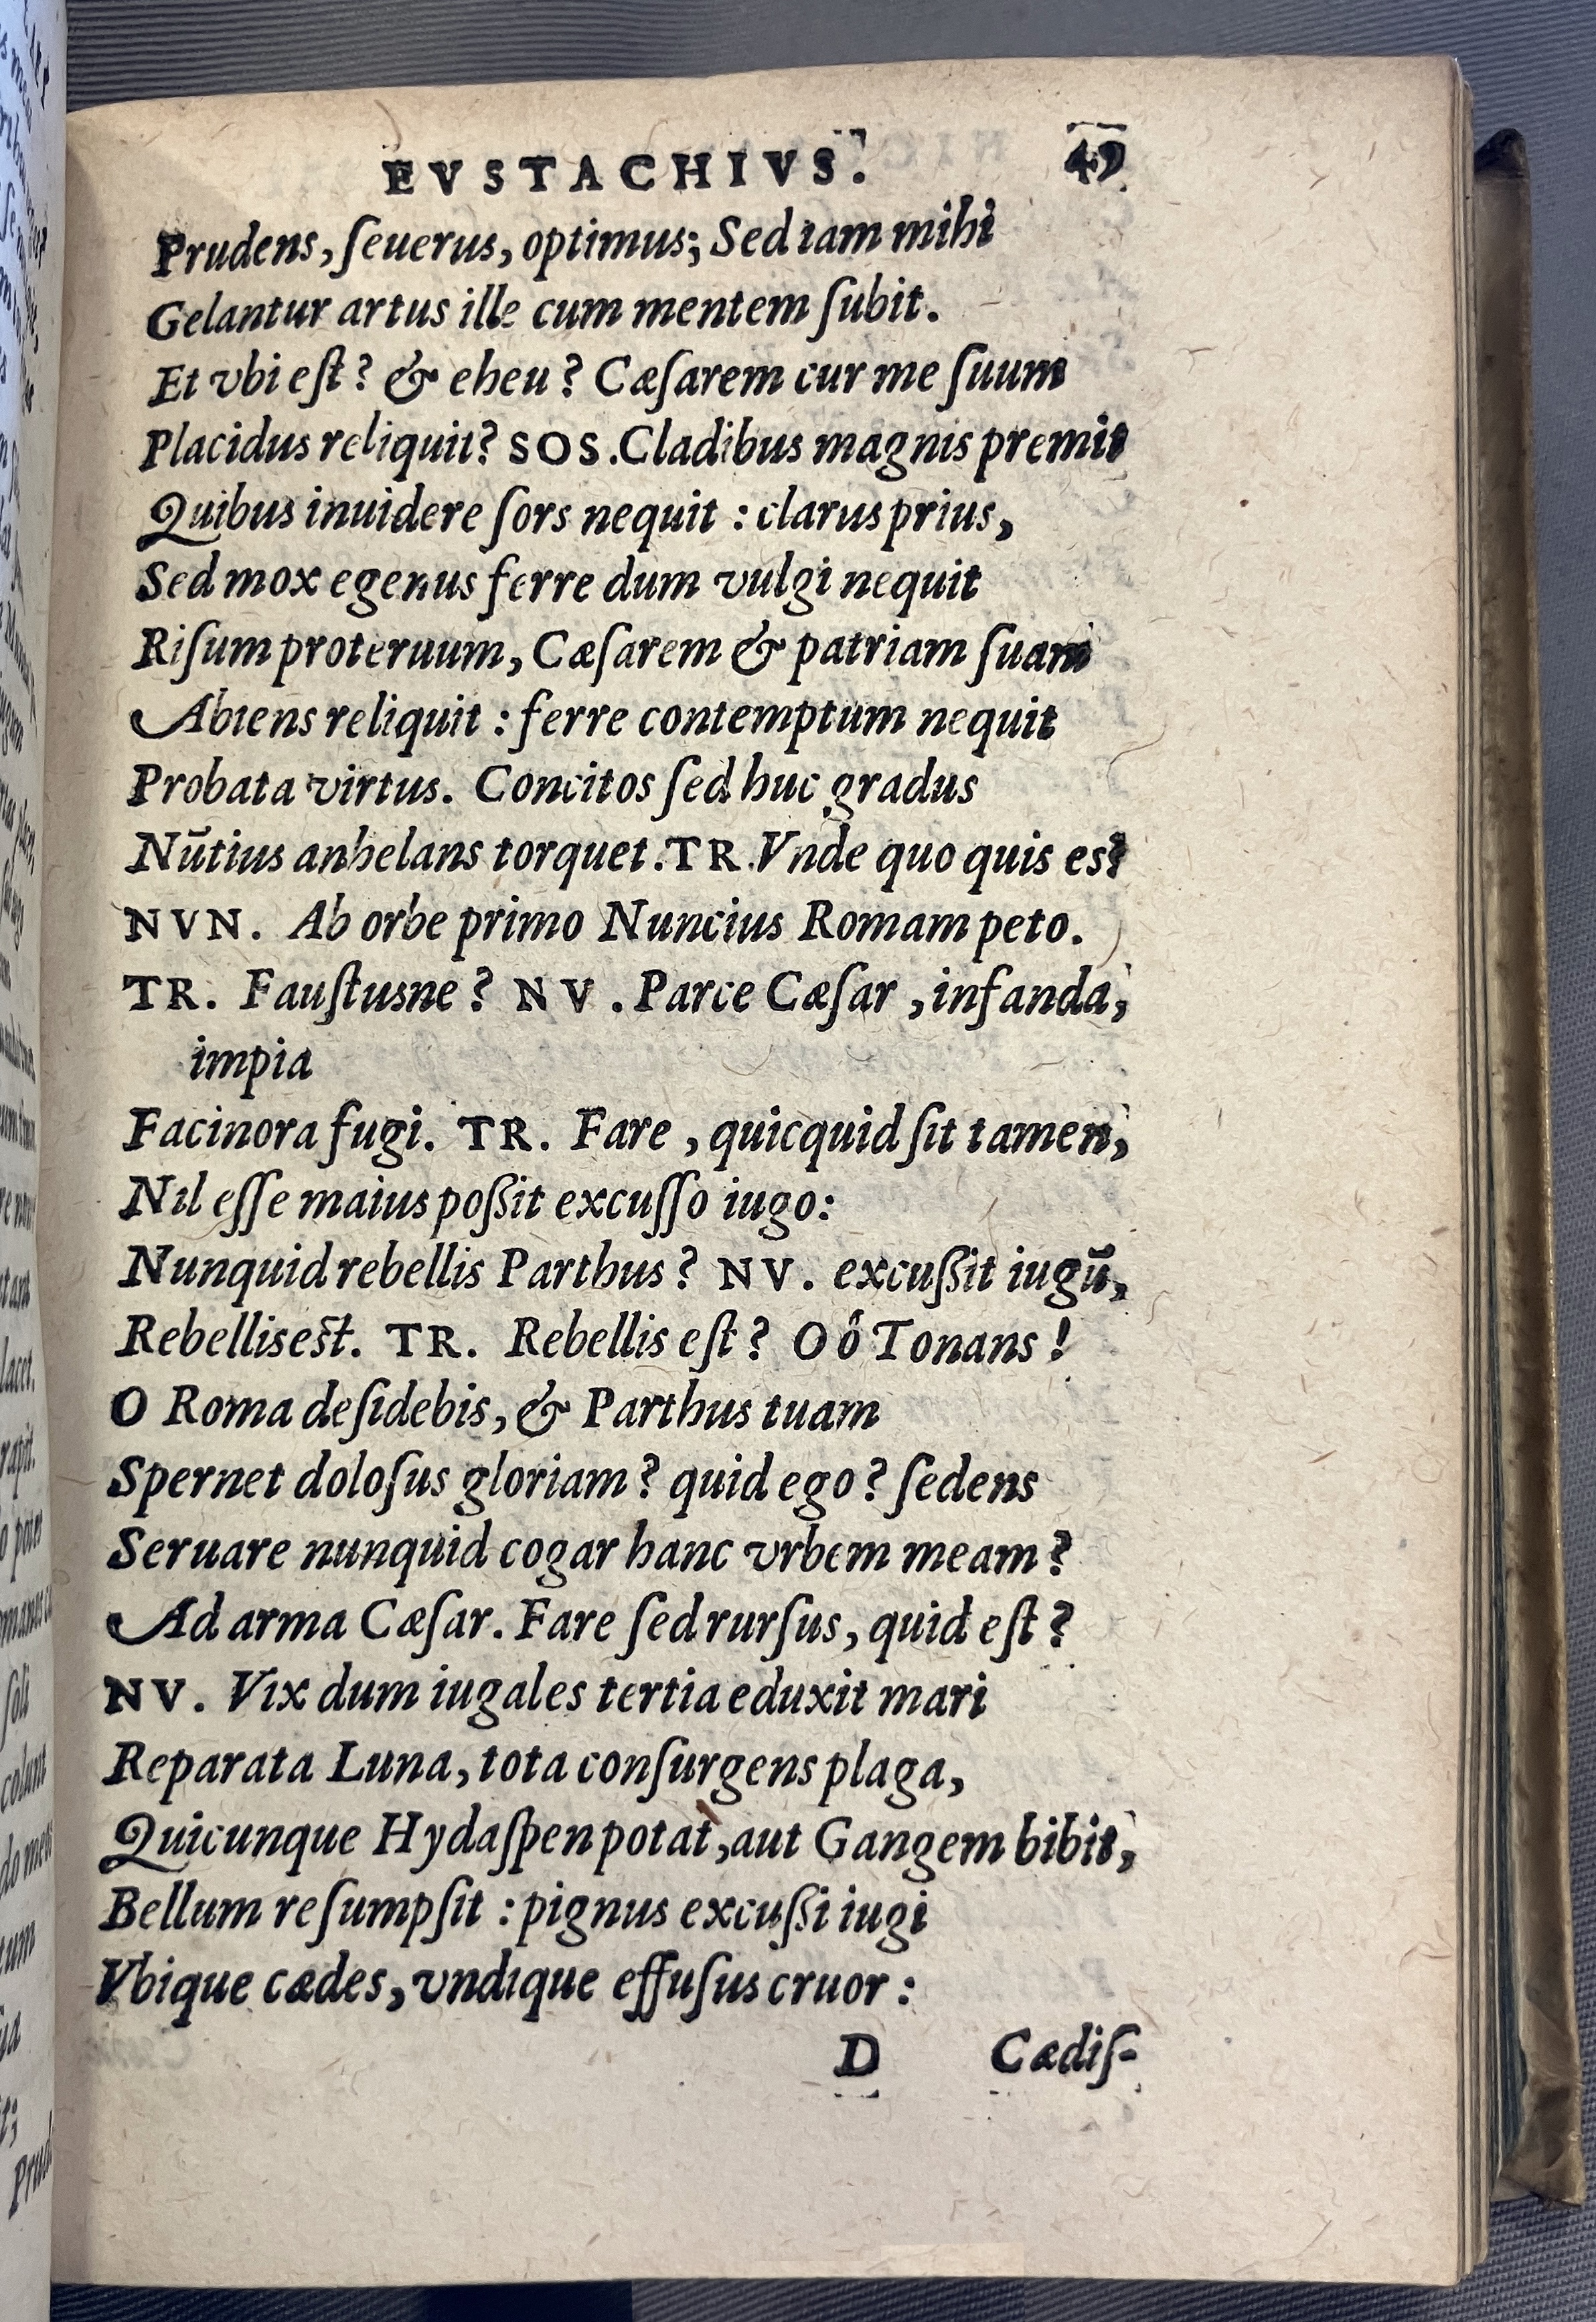 EVSTACHIVS. 49
Prudens, ſeuerus, optimus; Sed iam mihi
Gelantur artus ille cum mentem ſubit.
Et vbi eſt? & eheu? Cæſarem cur me ſuum
Placidus reliquit? SOS. Cladibus magnis premit
Quibus inuidere ſors nequit : clarus prius,
Sed mox egenus ferre dum vulgi nequit
Riſum proteruum, Cæſarem & patriam ſuam
Abiens reliquit : ferre contemptum nequit
Probata virtus. Concitos ſed huc gradus
Nūtius anhelans torquet. TR. Vnde quo quis es?
NVN. Ab orbe primo Nuncius Romam peto.
TR. Fauſtusne? NV. Parce Cæſar, infanda,
impia
Facinora fugi. TR. Fare, quicquid ſit tamen,
Nil eſſe maius poßit excuſſo iugo:
Nunquid rebellis Parthus? NV. excußit iugū,
Rebellis eſt. TR. Rebellis eſt? O ô Tonans!
O Roma deſidebis, & Parthus tuam
Spernet doloſus gloriam? quid ego? ſedens
Seruare nunquid cogar hanc vrbem meam?
Ad arma Cæſar. Fare ſed rurſus, quid eſt?
NV. Vix dum iugales tertia eduxit mari
Reparata Luna, tota conſurgens plaga,
Quicunque Hydaſpen potat, aut Gangem bibit,
Bellum reſumpſit : pignus excußi iugi
Vbique cædes, vndique effuſus cruor :
D Cædiſ-